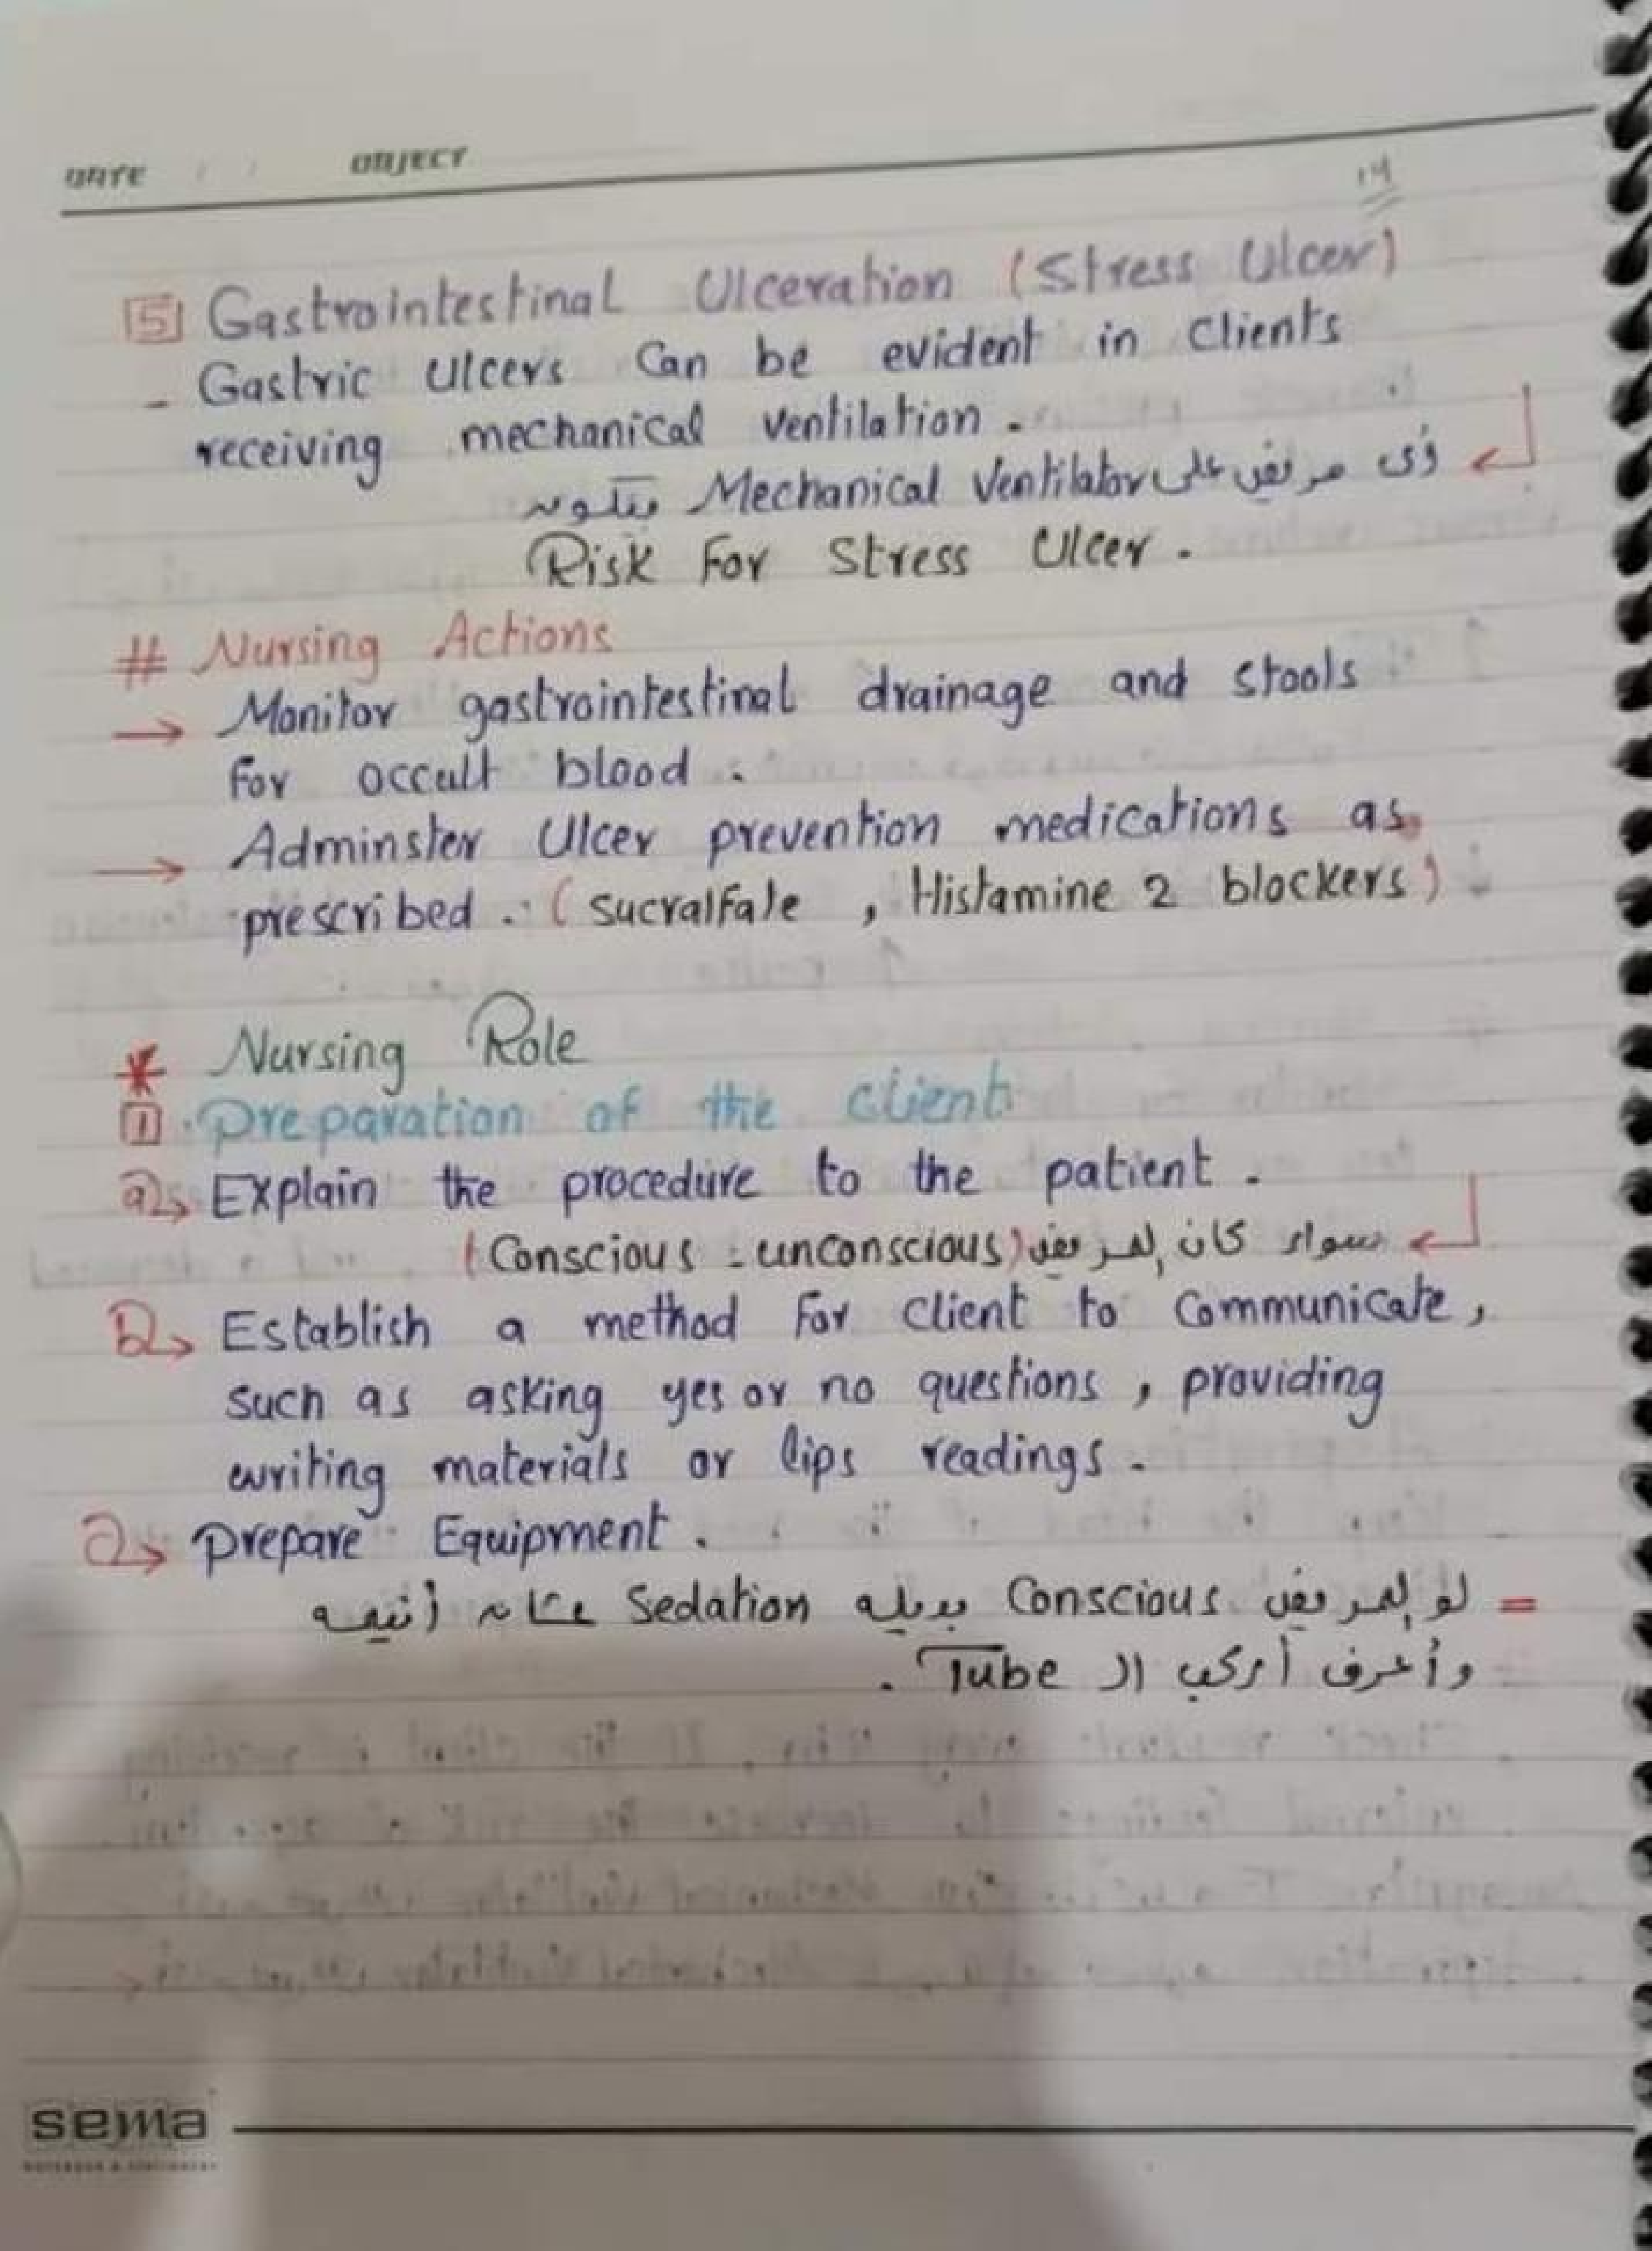 DATE / / OBJECT
14
5 Gastrointestinal Ulceration (Stress Ulcer)
- Gastric Ulcers Can be evident in Clients
receiving mechanical ventilation.
ؤى مريض على Mechanical Ventilator بيكون
Risk For Stress Ulcer.
# Nursing Actions
→ Monitor gastrointestinal drainage and stools
for occult blood.
→ Adminster Ulcer prevention medications as
prescribed. (sucralfate , Histamine 2 blockers)
* Nursing Role
1 Preparation of the client
a → Explain the procedure to the patient.
سواء كان المريض (Conscious - unconscious)
b → Establish a method For client to Communicate,
such as asking yes or no questions, providing
writing materials or lips readings.
c → prepare Equipment.
= لو المريض Conscious بديله Sedation عشان أنيمه
وأعرف أركب ال Tube.
sema
NOTEBOOK & STATIONERY